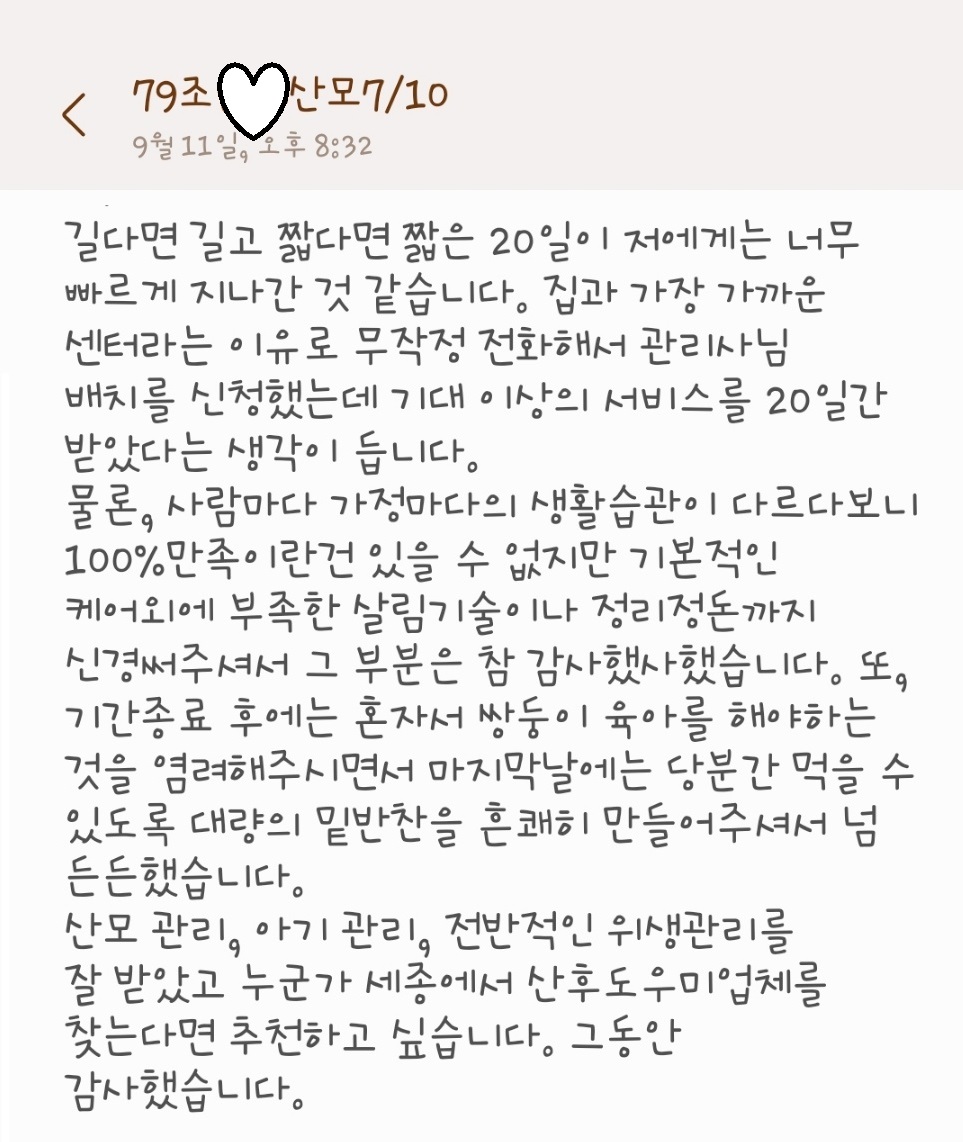 79조 산모7/10
9월 11일, 오후 8:32
길다면 길고 짧다면 짧은 20일이 저에게는 너무
빠르게 지나간 것 같습니다. 집과 가장 가까운
센터라는 이유로 무작정 전화해서 관리사님
배치를 신청했는데 기대 이상의 서비스를 20일간
받았다는 생각이 듭니다.
물론, 사람마다 가정마다의 생활습관이 다르다보니
100%만족이란건 있을 수 없지만 기본적인
케어외에 부족한 살림기술이나 정리정돈까지
신경써주셔서 그 부분은 참 감사했사했습니다. 또,
기간종료 후에는 혼자서 쌍둥이 육아를 해야하는
것을 염려해주시면서 마지막날에는 당분간 먹을 수
있도록 대량의 밑반찬을 흔쾌히 만들어주셔서 넘
든든했습니다.
산모 관리, 아기 관리, 전반적인 위생관리를
잘 받았고 누군가 세종에서 산후도우미업체를
찾는다면 추천하고 싶습니다. 그동안
감사했습니다.